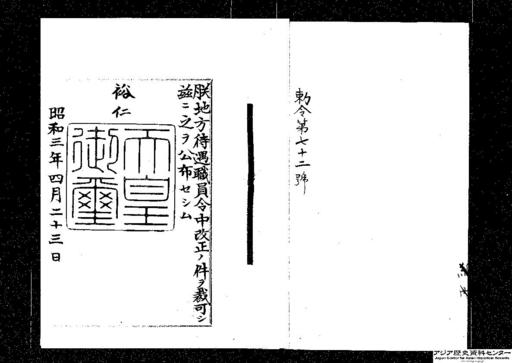 勅令第七十二號
朕地方待遇職員令中改正ノ件ヲ裁可シ
茲ニ之ヲ公布セシム
裕仁
天皇
御璽
昭和三年四月二十三日
アジア歴史資料センター
Japan Center for Asian Historical Records